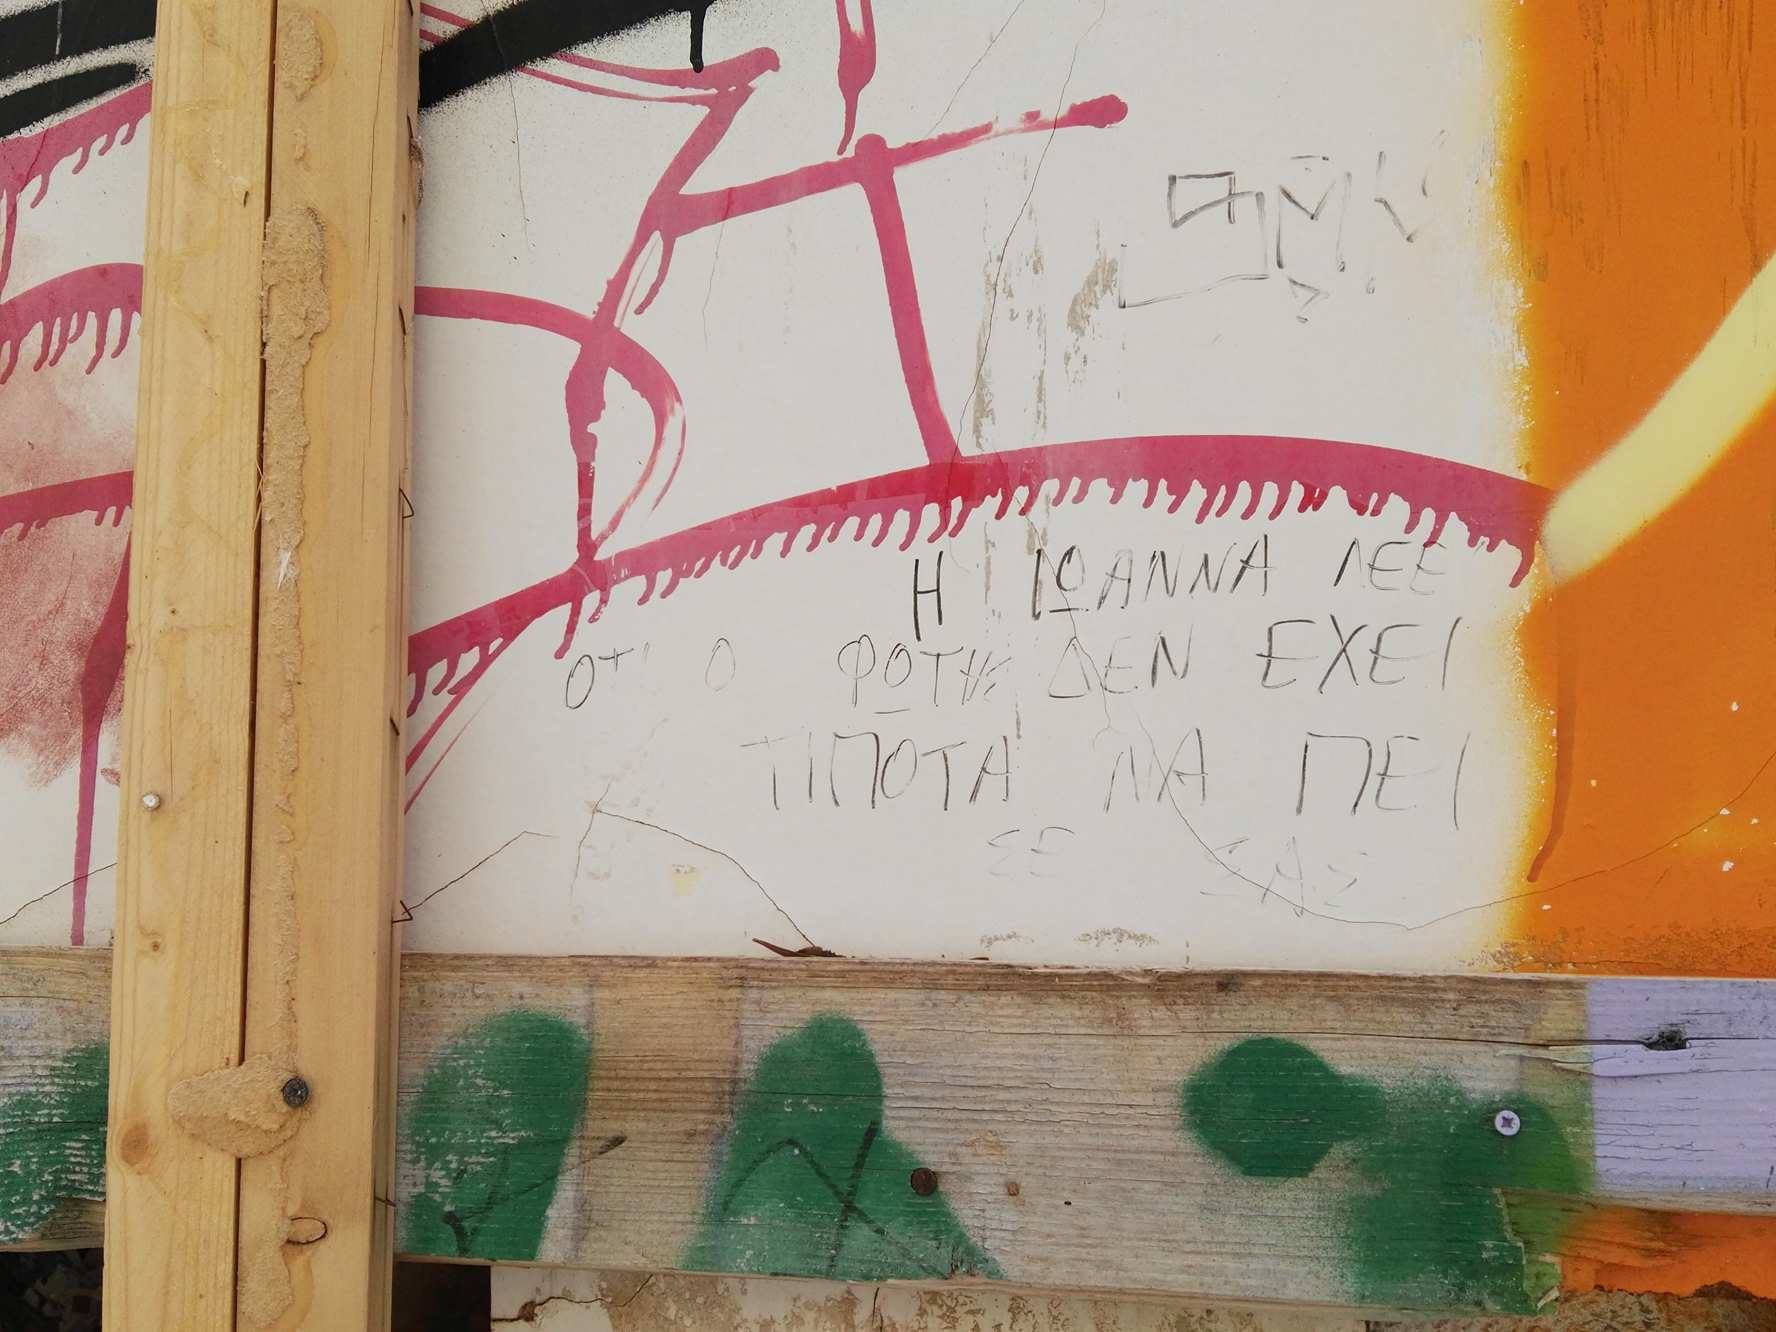 Η ΙΩΑΝΝΑ ΛΕΕΙ
ΟΤΙ Ο ΦΩΤΗΣ ΔΕΝ ΕΧΕΙ
ΤΙΠΟΤΑ ΝΑ ΠΕΙ
ΣΕ ΣΑΣ